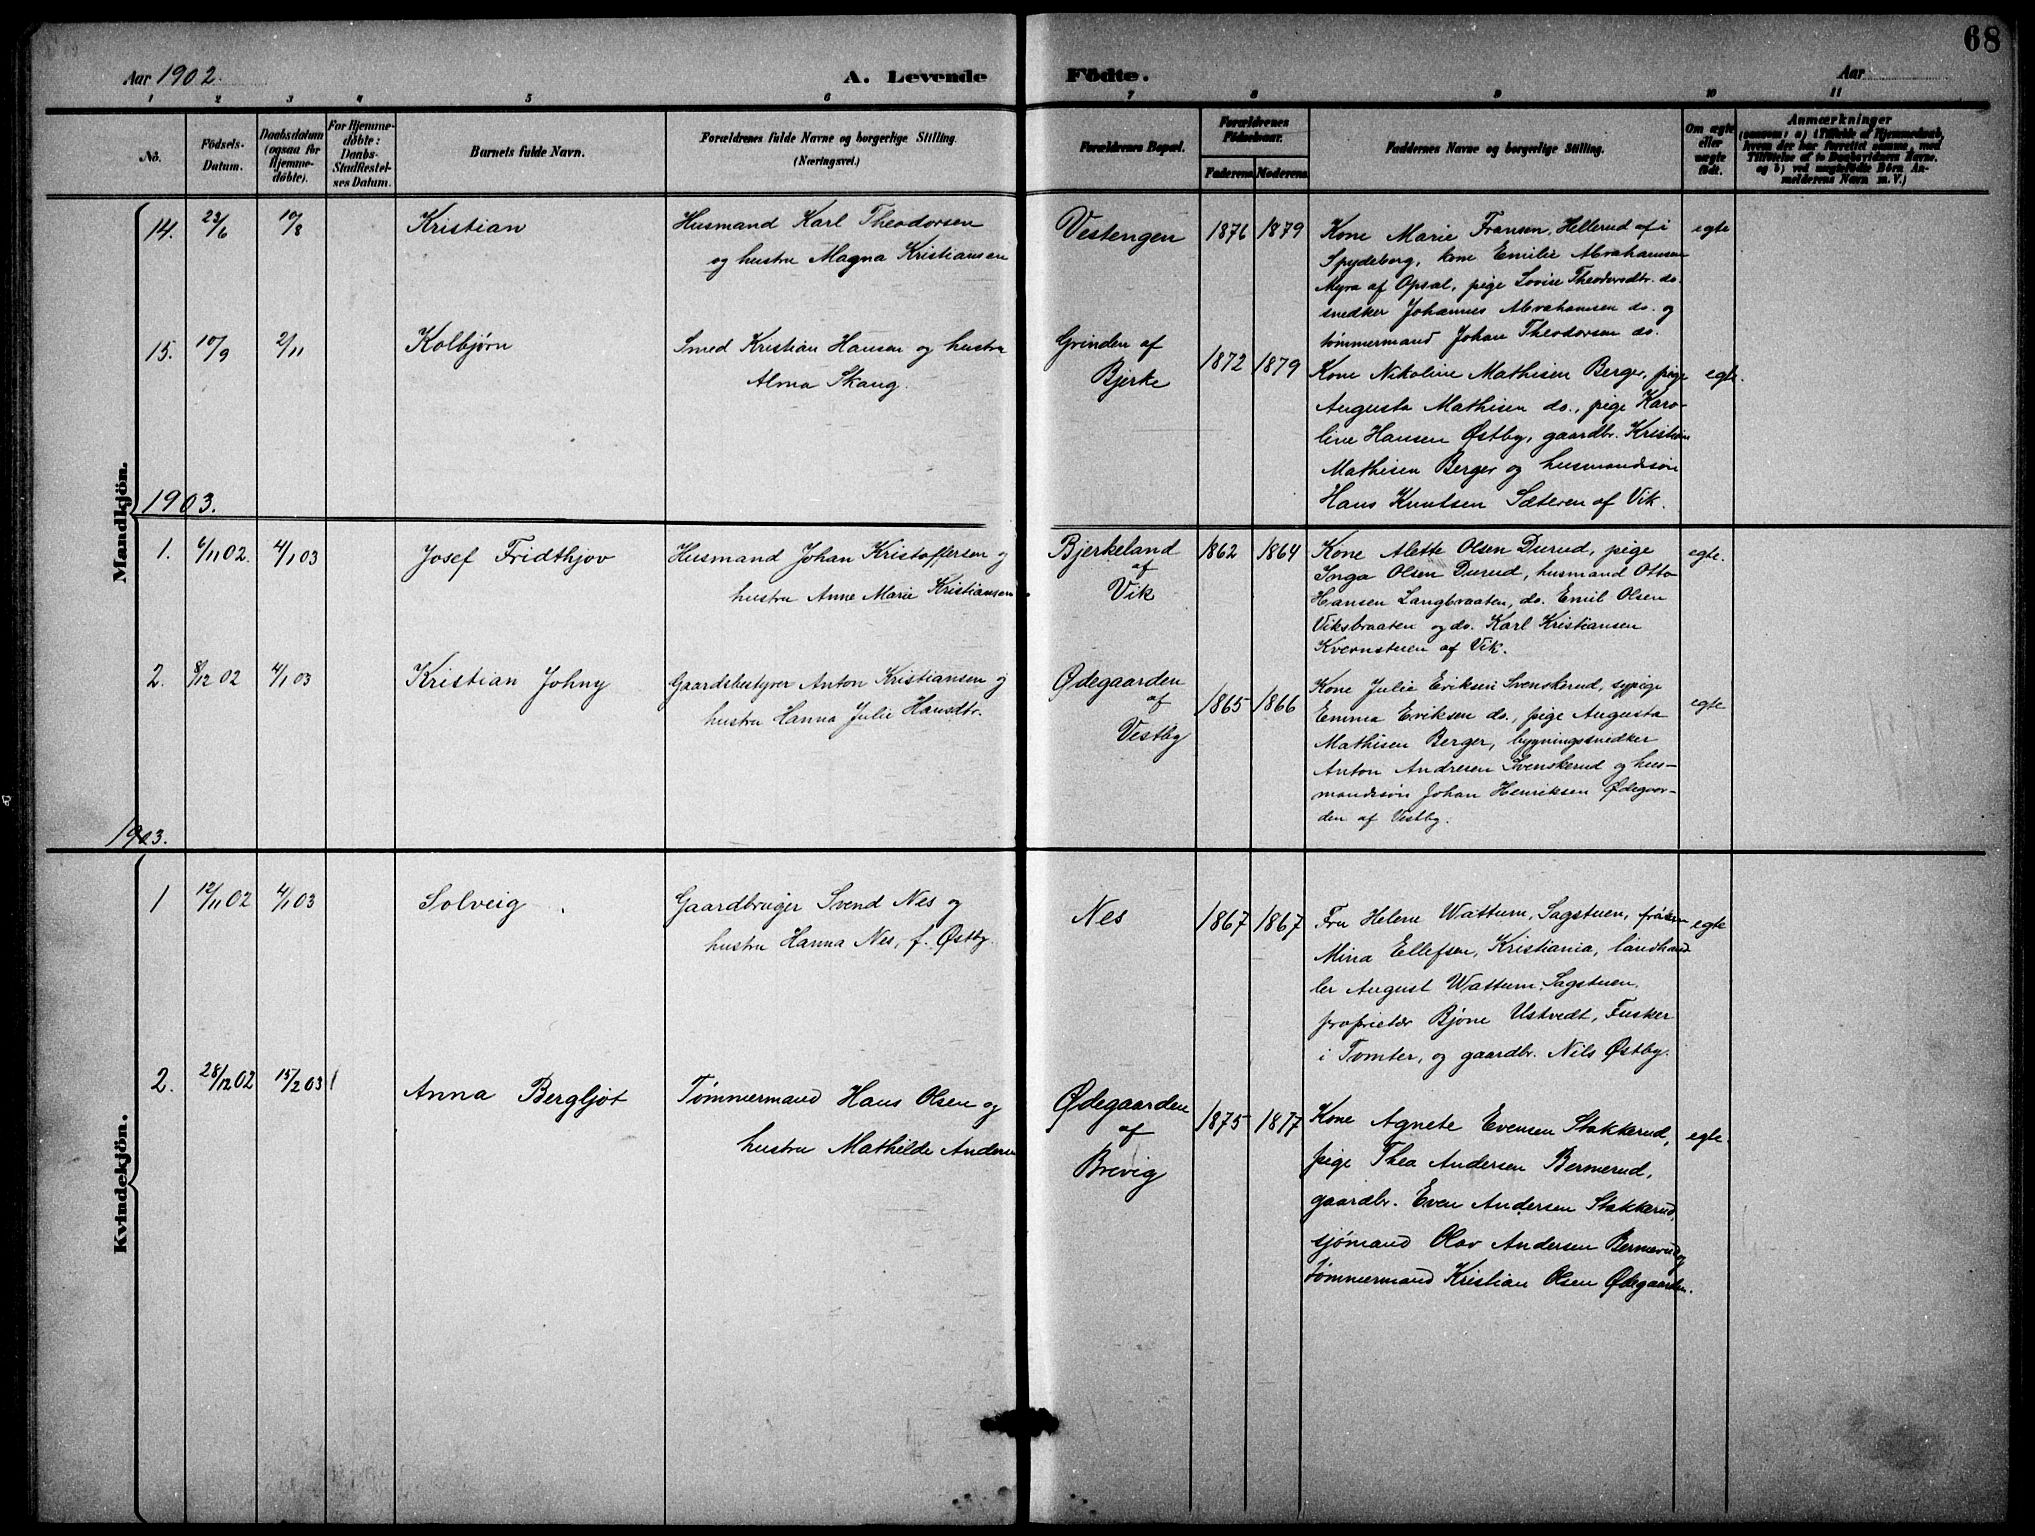 68
Aar 1902.
A. Levende Födte.
Aar
1 2 3 4 5 6 7 8 9 10 11
No.
Födsels-
Datum.
Daabsdatum
(ogsaa for
Hjemme-
döbte).
For Hjemme-
döbte:
Daabs-
Stadfæstel-
ses Datum.
Barnets fulde Navn.
Forældrenes fulde Navne og borgerlige Stilling.
(Næringsvei.)
Forældrenes Bopæl.
Forældrenes
Födselsaar.
Faderens Moderens
Faddernes Navne og borgerlige Stilling.
Om ægte
eller
uægte
født.
Anmærkninger
Mandkjön.
14. 23/6 10/8 Kristian
Husmand Karl Theodorsen
og hustru Magna Kristiansen
Vestengen
1876 1879
Kone Marie Fransen, Hellerud af i
Spydeberg, kone Emilie Abrahamsen
Myra af Opsal, pige Lovise Theodorsdtr. do.
snedker Johannes Abrahamsen do. og
tømmermand Johan Theodorsen do.
egte
15. 10/9 2/11 Kolbjørn
Smed Kristian Hansen og hustru
Alma Skaug.
Grinden af
Bjerke
1872 1879
Kone Nikoline Mathisen Berger, pige
Augusta Mathisen do., pige Karo-
line Hansen Østby, gaardbr. Kristian
Mathisen Berger og husmandssøn
Hans Knutsen Sæteren af Vik.
egte.
1903.
1. 6/11 02 4/1 03 Josef Fridthjov
Husmand Johan Kristoffersen og
hustru Anne Marie Kristiansen
Bjerkeland
af
Vik
1862 1864
Kone Alette Olsen Durud, pige
Inga Olsen Durud, husmand Otto
Hansen Langbraaten, do. Emil Olsen
Viksbraaten og do. Karl Kristiansen
Kvernstuen af Vik.
egte.
2. 8/12 02 4/1 03 Kristian Johny
Gaardsbestyrer Anton Kristiansen og
hustru Hanna Julie Hansdtr.
Ødegaarden
af
Vestby
1865 1866
Kone Julie Eriksen Svenskerud, sypige
Emma Eriksen do., pige Augusta
Mathisen Berger, bygningssnedker
Anton Andresen Svenskerud og hus-
mandssøn Johan Henriksen Ødegaar-
den af Vestby.
egte
1903.
Kvindekjön.
1 12/11 02 4/1 03 Solveig
Gaardbruger Svend Nes og
hustru Hanna Nes, f. Østby.
Nes
1867 1867
Fru Helene Wattum, Sagstuen, frøken
Mina Ellefsen, Kristiania, landhand
ler August Wattum, Sagstuen,
proprietær Bjøne Ustvedt, Fusker
i Tomter, og gaardbr. Nils Østby.
egte
2. 28/12 02 15/2 03 Anna Bergljot
Tømmermand Hans Olsen og
hustru Mathilde Andersen
Ødegaarden
af
Brevig
1875 1877
Kone Agnete Evensen Stakkerud,
pige Thea Andersen Bermerud,
gaardbr. Even Andersen Stakkerud,
sjømand Olav Andersen Bermerud og
tømmermand Kristian Olsen Ødegaarden.
egte.